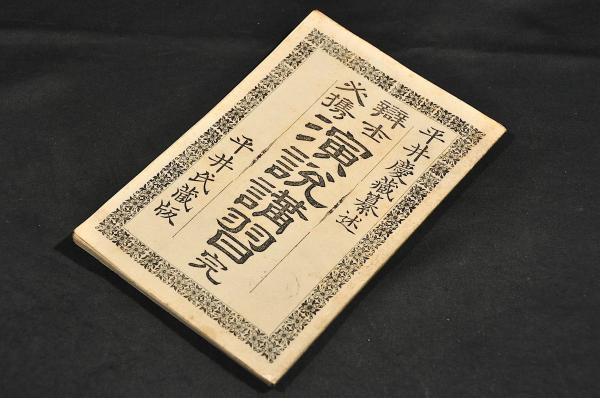 平井慶藏纂述
辯士必携演説講習完
平井氏藏版